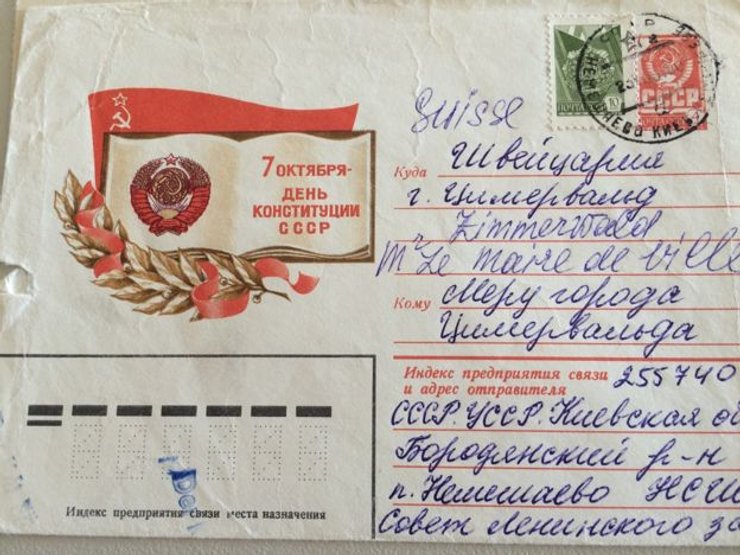 Suisse
ПОЧТА 10
СССР
7 ОКТЯБРЯ-
ДЕНЬ
КОНСТИТУЦИИ
СССР
Куда Швейцария
г. Цимервальд
Zimmerwald
Mr Le maire de ville
Кому Меру города
Цимервальда
Индекс предприятия связи
и адрес отправителя 255740
СССР. УССР. Киевская о
Бородянский р-н
п. Немешаево НСШ
Совет Ленинского за
Индекс предприятия связи места назначения